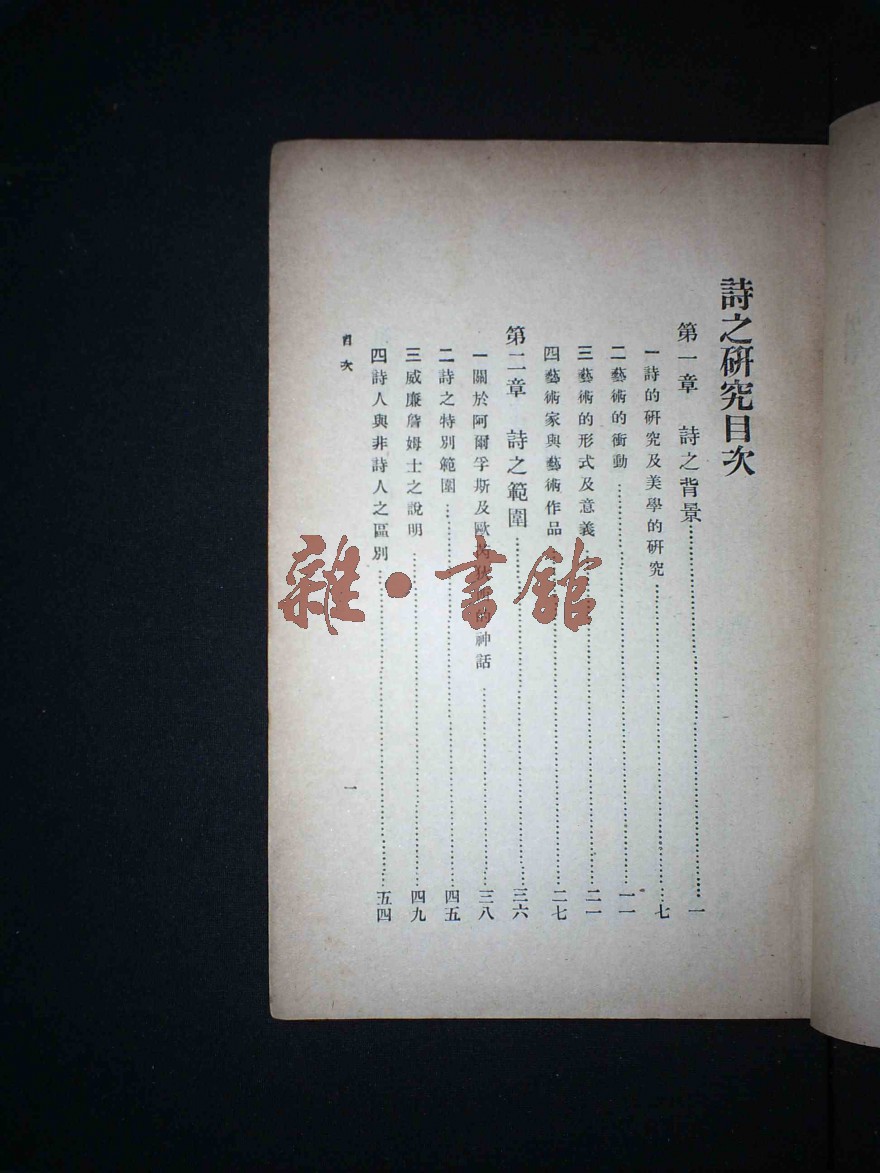 詩之研究目次
第一章 詩之背景……一
一詩的研究及美學的研究……七
二藝術的衝動……一一
三藝術的形式及意義……二一
四藝術家與藝術作品……二七
第二章 詩之範圍……三六
一關於阿爾孚斯及歐 的神話……三八
二詩之特別範圍……四五
三威廉詹姆士之說明……四九
四詩人與非詩人之區別……五四
目次
一
雜·書館